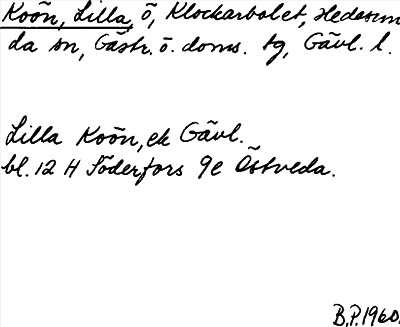 Koön, Lilla, ö, Klockarbolet, Hedesun
da sn, Gästr. ö. doms. tg, Gävl. l.
Lilla Koön, ek Gävl.
bl. 12 H Söderfors 9e Östveda.
B.P. 1960.